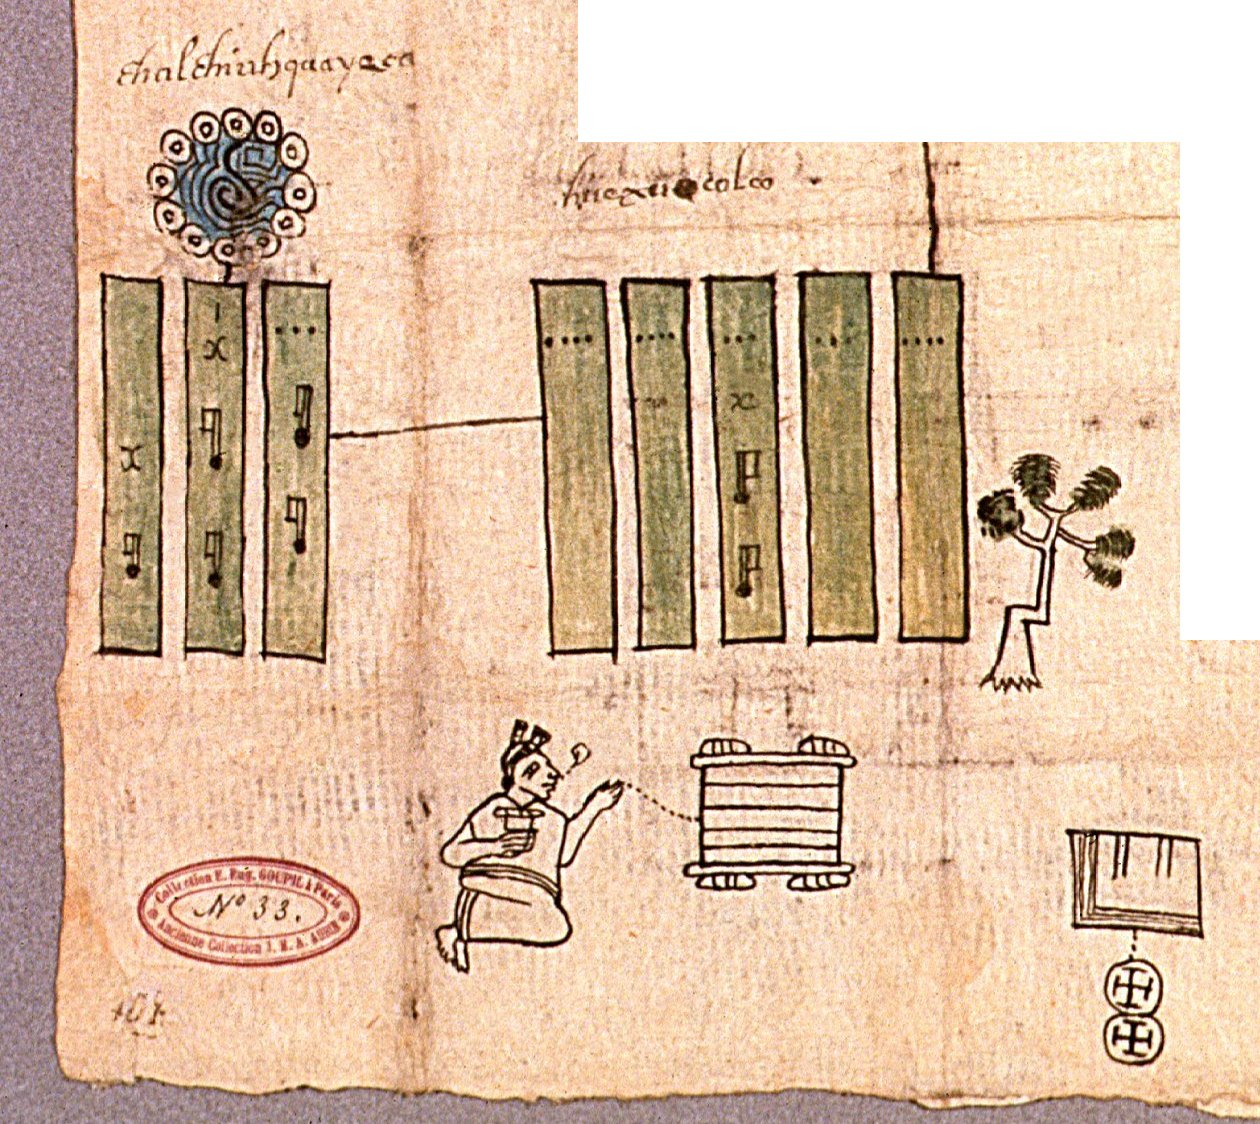 chalchiuhquayeca
huexuocolco
Collection E. Eug. GOUPIL à Paris
Nº 33.
Ancienne Collection J. M. A. AUBIN